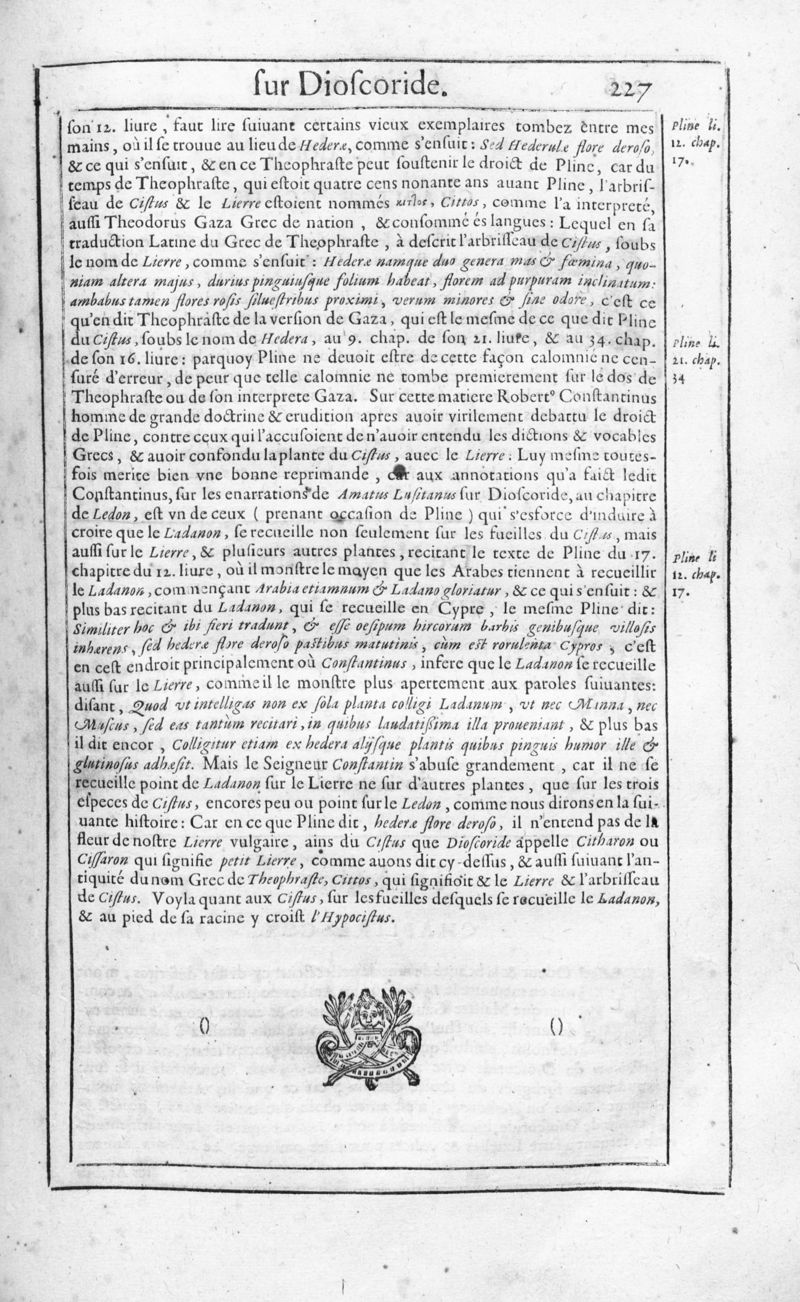 ſur Dioſcoride. 227
ſon 12. liure, faut lire ſuiuant certains vieux exemplaires tombez êntre mes
mains, où il ſe trouue au lieu de Hederæ, comme s'enſuit: Sed Hederulæ flore deroſo,
& ce qui s'enſuit, & en ce Theophraſte peut ſouſtenir le droict de Pline, car du
temps de Theophraſte, qui eſtoit quatre cens nonante ans auant Pline, l'arbriſ-
ſeau de Ciſtus & le Lierre eſtoient nommés κιτ]ος, Cittos, comme l'a interpreté,
auſſi Theodorus Gaza Grec de nation, & conſommé és langues: Lequel en ſa
traduction Latine du Grec de Theophraſte, à deſcrit l'arbriſſeau de Ciſtus, ſoubs
le nom de Lierre, comme s'enſuit: Hederæ namque duo genera mas & fœmina, quo-
niam altera majus, durius pinguiuſque folium habeat, florem ad purpuram inclinatum:
ambabus tamen flores roſis ſilueſtribus proximi, verum minores & ſine odore, c'eſt ce
qu'en dit Theophraſte de la verſion de Gaza, qui eſt le meſme de ce que dit Pline
du Ciſtus, ſoubs le nom de Hedera, au 9. chap. de ſon 21. liure, & au 34. chap.
de ſon 16. liure: parquoy Pline ne deuoit eſtre de cette façon calomnié ne cen-
ſuré d'erreur, de peur que telle calomnie ne tombe premierement ſur le dos de
Theophraſte ou de ſon interprete Gaza. Sur cette matiere Robertꝰ Conſtantinus
homme de grande doctrine & erudition apres auoir virilement debattu le droict
de Pline, contre ceux qui l'accuſoient de n'auoir entendu les dictions & vocables
Grecs, & auoir confondu la plante du Ciſtus, auec le Lierre: Luy meſme toutes-
fois merite bien vne bonne reprimande, car aux annotations qu'a faict ledit
Conſtantinus, ſur les enarrations de Amatus Luſitanus ſur Dioſcoride, au chapitre
de Ledon, eſt vn de ceux ( prenant occaſion de Pline ) qui s'esforce d'induire à
croire que le Ladanon, ſe recueille non ſeulement ſur les fueilles du Ciſtus, mais
auſſi ſur le Lierre, & pluſieurs autres plantes, recitant le texte de Pline du 17.
chapitre du 12. liure, où il monſtre le moyen que les Arabes tiennent à recueillir
le Ladanon, commençant Arabia etiamnum & Ladano gloriatur, & ce qui s'enſuit: &
plus bas recitant du Ladanon, qui ſe recueille en Cypre, le meſme Pline dit:
Similiter hoc & ibi fieri tradunt, & eſſe oeſipum hircorum barbis genibuſque villoſis
inhærens, ſed hederæ flore deroſo paſtibus matutinis, cùm est rorulenta Cypros, c'eſt
en ceſt endroit principalement où Conſtantinus, infere que le Ladanon ſe recueille
auſſi ſur le Lierre, comme il le monſtre plus apertement aux paroles ſuiuantes:
diſant, Quod vt intelligas non ex ſola planta colligi Ladanum, vt nec Manna, nec
Muſcus, ſed eas tantùm recitari, in quibus laudatißima illa proueniant, & plus bas
il dit encor, Colligitur etiam ex hedera alijſque plantis quibus pinguis humor ille &
glutinoſus adhæſit. Mais le Seigneur Conſtantin s'abuſe grandement, car il ne ſe
recueille point de Ladanon ſur le Lierre ne ſur d'autres plantes, que ſur les trois
eſpeces de Ciſtus, encores peu ou point ſur le Ledon, comme nous dirons en la ſui-
uante hiſtoire: Car en ce que Pline dit, hederæ flore deroſo, il n'entend pas de la
fleur de noſtre Lierre vulgaire, ains du Ciſtus que Dioſcoride appelle Citharon ou
Ciſſaron qui ſignifie petit Lierre, comme auons dit cy-deſſus, & auſſi ſuiuant l'an-
tiquité du nom Grec de Theophraſte, Cittos, qui ſignifioit & le Lierre & l'arbriſſeau
de Ciſtus. Voyla quant aux Ciſtus, ſur les fueilles deſquels ſe recueille le Ladanon,
& au pied de ſa racine y croiſt l'Hypociſtus.
Pline li.
12. chap.
17.
Pline li.
21. chap.
34
Pline li
12. chap.
17.
() ()